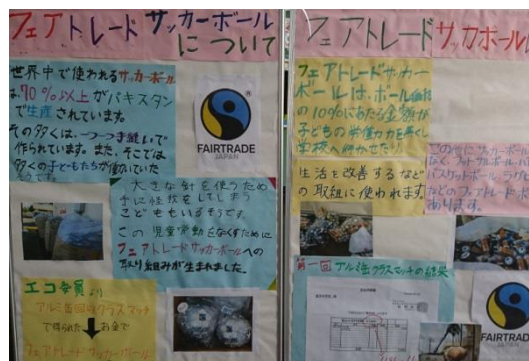 フェアトレード サッカーボール
について
世界中で使われるサッカーボール
は、70%以上がパキスタン
で生産されています。
その多くは、一つ一つ手縫いで
作られています。また、そこでは
多くの子どもたちが働いていた
そうです。
FAIRTRADE
JAPAN
大きな針を使うため
手に怪我をしてしまう
こどももいるそうです。
この児童労働をなくすために
フェアトレードサッカーボールへの
取り組みが生まれました。
エコ委員より
アルミ缶回収クラスマッチ
で得られた お金で
フェアトレードサッカーボール
フェアトレード サッカーボール
フェアトレードサッカー
ボールは、ボール価格
の10%にあたる金額が
子どもの労働力を無くし
学校へ行かせたり
生活を改善するなど
の取組に使われます
この他にサッカーボール
なく、フットサルボール・バ
バスケットボール・ラグビ
などのフェアトレードボ
あります。
第一回 アルミ缶クラスマッチの結果
FAIRTRADE
JAPAN